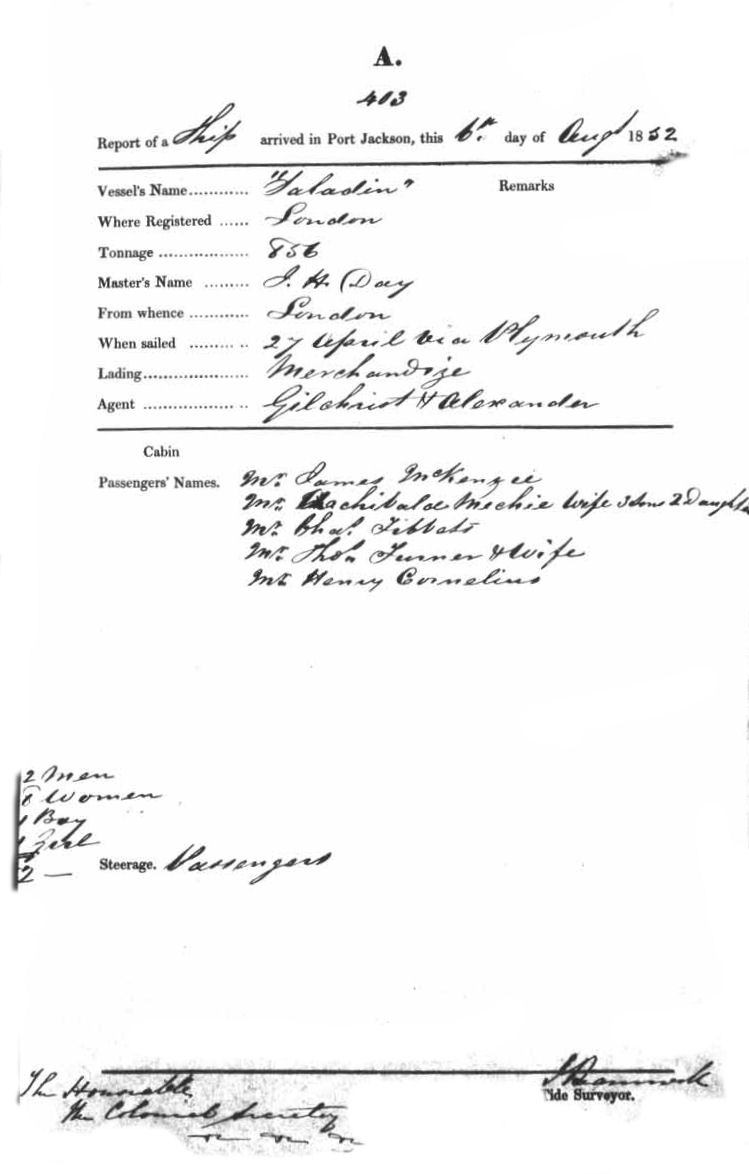 A.
403
Report of a Ship arrived in Port Jackson, this 6th day of Augt 1852
Vessel's Name............ "Saladin" Remarks
Where Registered ...... London
Tonnage .................. 856
Master's Name ......... J. H. Day
From whence ............ London
When sailed ......... .. 27 April via Plymouth
Lading..................... Merchandize
Agent .................. .. Gilchrist & Alexander
Cabin
Passengers' Names. Mr. James McKenzie
Mr. Archibald Mechie Wife 3 Sons 2 Daughters
Mr. Chas. Tibbats
Mr. Thos. Turner & Wife
Mr. Henry Cornelius
2 Men
8 Women
1 Boy
1 Girl
2 — Steerage. Passengers
The Honorable
The Colonial Secretary
Tide Surveyor.